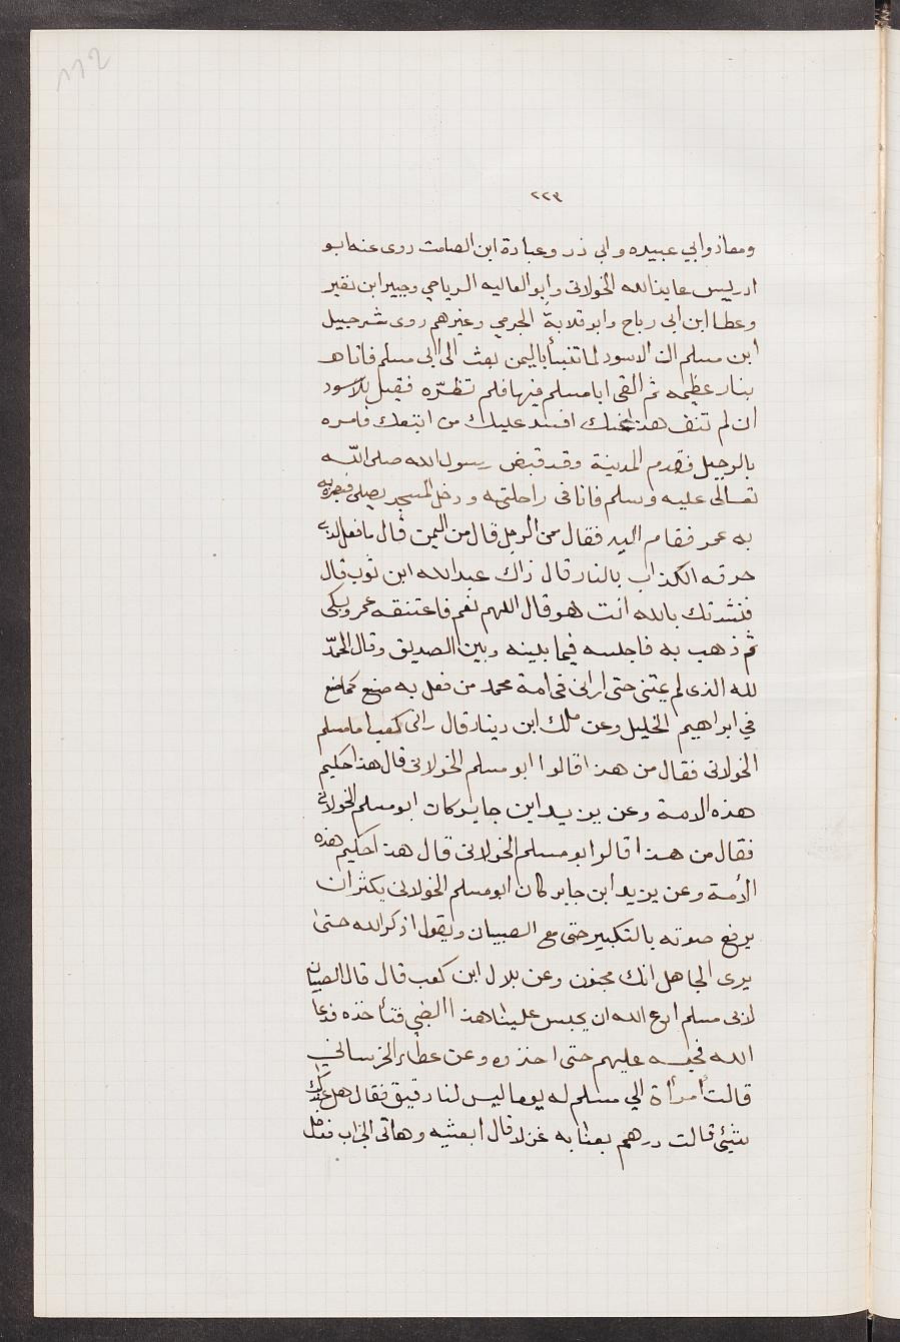 112
٢٢٣
ومعاذ وابي عبيده وابي ذر وعبادة ابن الصامت روى عنه ابو
ادريس عايذ الله الخولانى وابو العاليه الرياحي وجبير ابن نفير
وعطا ابن ابى رباح وابو قلابة الجرمي وغيرهم روى شرحبيل
ابن مسلم ان الاسود لما تنبأ باليمن بعث الى ابى مسلم فاتاه
بنار عظيمه ثم القى ابا مسلم فيها فلم تظرّه فقيل للاسود
ان لم تنف هذا عنك افسد عليك من اتبعك فامره
بالرحيل فقدم المدينة وقد قبض رسول الله صلى الله
تعالى عليه وسلم فاناخ راحلته ودخل المسجد يصلى فبصر به
به عمر فقام اليه فقال من الرجل قال من اليمن قال ما فعل الذى
حرقه الكذاب بالنار قال ذاك عبد الله ابن ثوب قال
فنشدتك بالله انت هو قال اللهم نعم فاعتنقه عمر وبكى
ثم ذهب به فاجلسه فيما بينه وبين الصديق وقال الحمد
لله الذى لم يمتنى حتى ارانى فى امة محمد من فعل به صنع كما صنع
في ابراهيم الخليل وعن ملك ابن دينار قال راى كعب ابا مسلم
الخولانى فقال من هذا قالوا ابو مسلم الخولانى قال هذا حكيم
هذه الامة وعن يزيد ابن جابر كان ابو مسلم الخولانى
فقال من هذا قالوا ابو مسلم الخولانى قال هذا حكيم هذه
الأمة وعن يزيد ابن جابر كان ابو مسلم الخولانى يكثر ان
يرفع صوته بالتكبير حتى مع الصبيان ويقول اذكر الله حتى
يرى الجاهل انك مجنون وعن بلال ابن كعب قال قال الصبيان
لابى مسلم ادع الله ان يحبس علينا هذا الظبي فنأخذه فدعا
الله فحبسه عليهم حتى اخذوه وعن عطاء الخرساني
قالت أمرأة ابي مسلم له يوما ليس لنا دقيق فقال هل عندك
شيئ قالت درهم بعنا به غزلا قال ابعثيه وهاتى الجراب فدخل